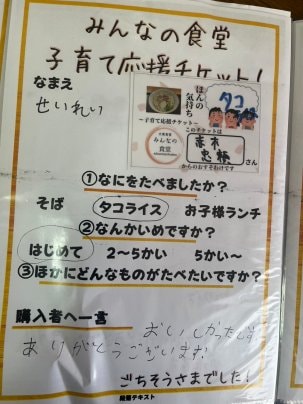 みんなの食堂
子育て応援チケット!
なまえ
せいれい
ほんの
気持ち
タコ
~子育て応援チケット~
みんなの
食堂
このチケットは
赤木
忠様 さん
からのおすそわけです
①なにをたべましたか?
そば タコライス お子様ランチ
②なんかいめですか?
はじめて 2~5かい 5かい~
③ほかにどんなものがたべたいですか?
購入者へ一言
おいしかったです
ありがとうございます!
ごちそうさまでした!